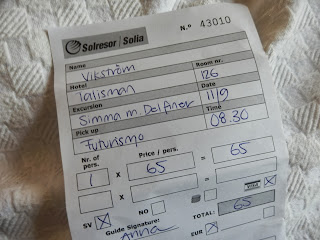 Solresor | Solia N.º 43010
Name Room nr.
Vikström 126
Hotel Date
Talisman 11/9
Excursion Time
Simma m. Delfiner 08.30
Pick up
Futurismo
Nr. of pers. Price / pers.
1 x 65 = 65
x =
VISA
SV X NO TOTAL: 65
Guide Signature: EUR X
Anna